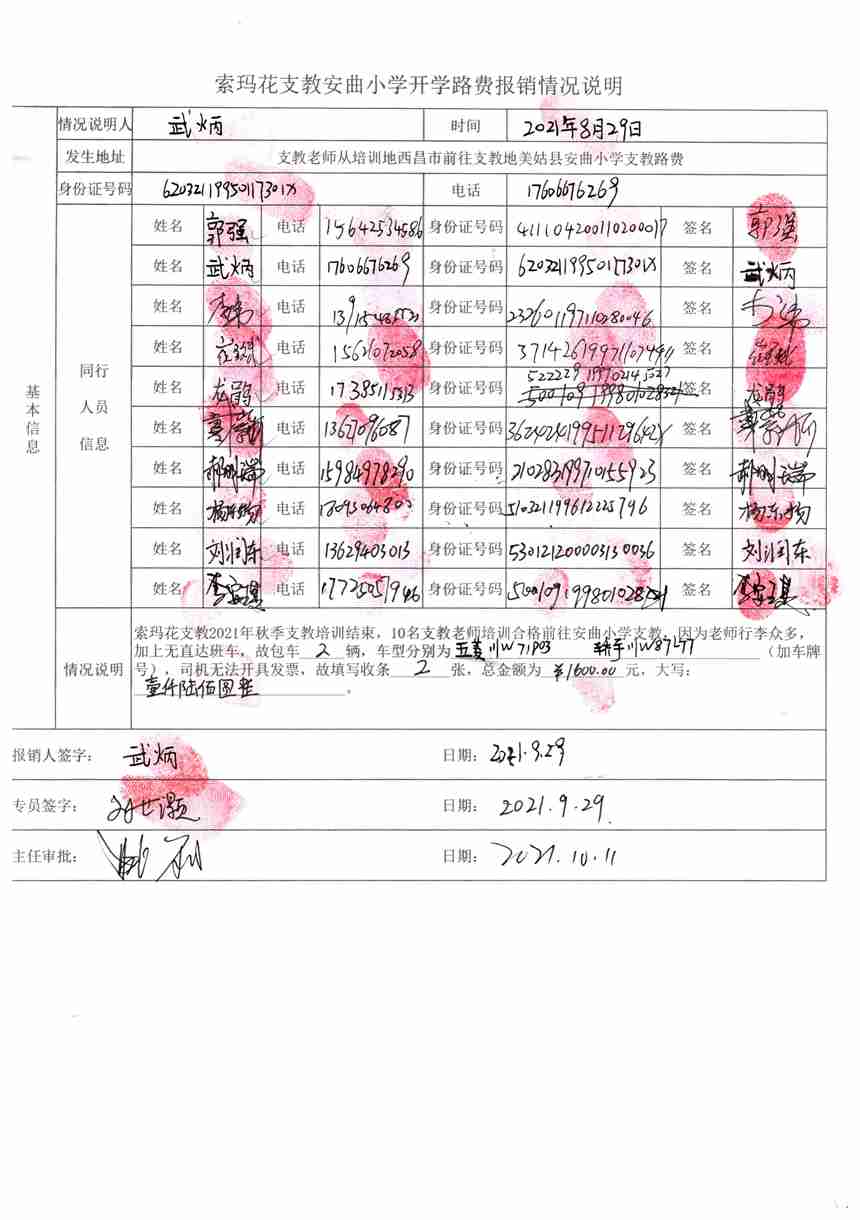 索玛花支教安曲小学开学路费报销情况说明
情况说明人 武炳 时间 2021年8月29日
发生地址 支教老师从培训地西昌市前往支教地美姑县安曲小学支教路费
身份证号码 62032119950117301X 电话 17606676269
基本信息
同行人员信息
姓名 郭强 电话 15642534586 身份证号码 411104200110200017 签名 郭强
姓名 武炳 电话 17606676269 身份证号码 62032119950117301X 签名 武炳
姓名 电话 身份证号码 签名
姓名 电话 15621072058 身份证号码 签名
姓名 龙鹃 电话 17385115313 身份证号码 522229199702145227 签名 龙鹃
姓名 电话 身份证号码 签名
姓名 郝明瑞 电话 15984978290 身份证号码 签名 郝明瑞
姓名 杨东杨 电话 身份证号码 510321199612225796 签名 杨东杨
姓名 刘润东 电话 13629403013 身份证号码 530121200003130036 签名 刘润东
姓名 李安琪 电话 17725051946 身份证号码 签名 李安琪
情况说明
索玛花支教2021年秋季支教培训结束，10名支教老师培训合格前往安曲小学支教，因为老师行李众多，
加上无直达班车，故包车 2 辆，车型分别为 五菱川W71P03 轿车川W87L77 （加车牌
号），司机无法开具发票，故填写收条 2 张，总金额为 ¥1600.00 元，大写：
壹仟陆佰圆整 。
报销人签字： 武炳 日期： 2021.9.29
专员签字： 日期： 2021.9.29
主任审批： 日期： 2021.10.11